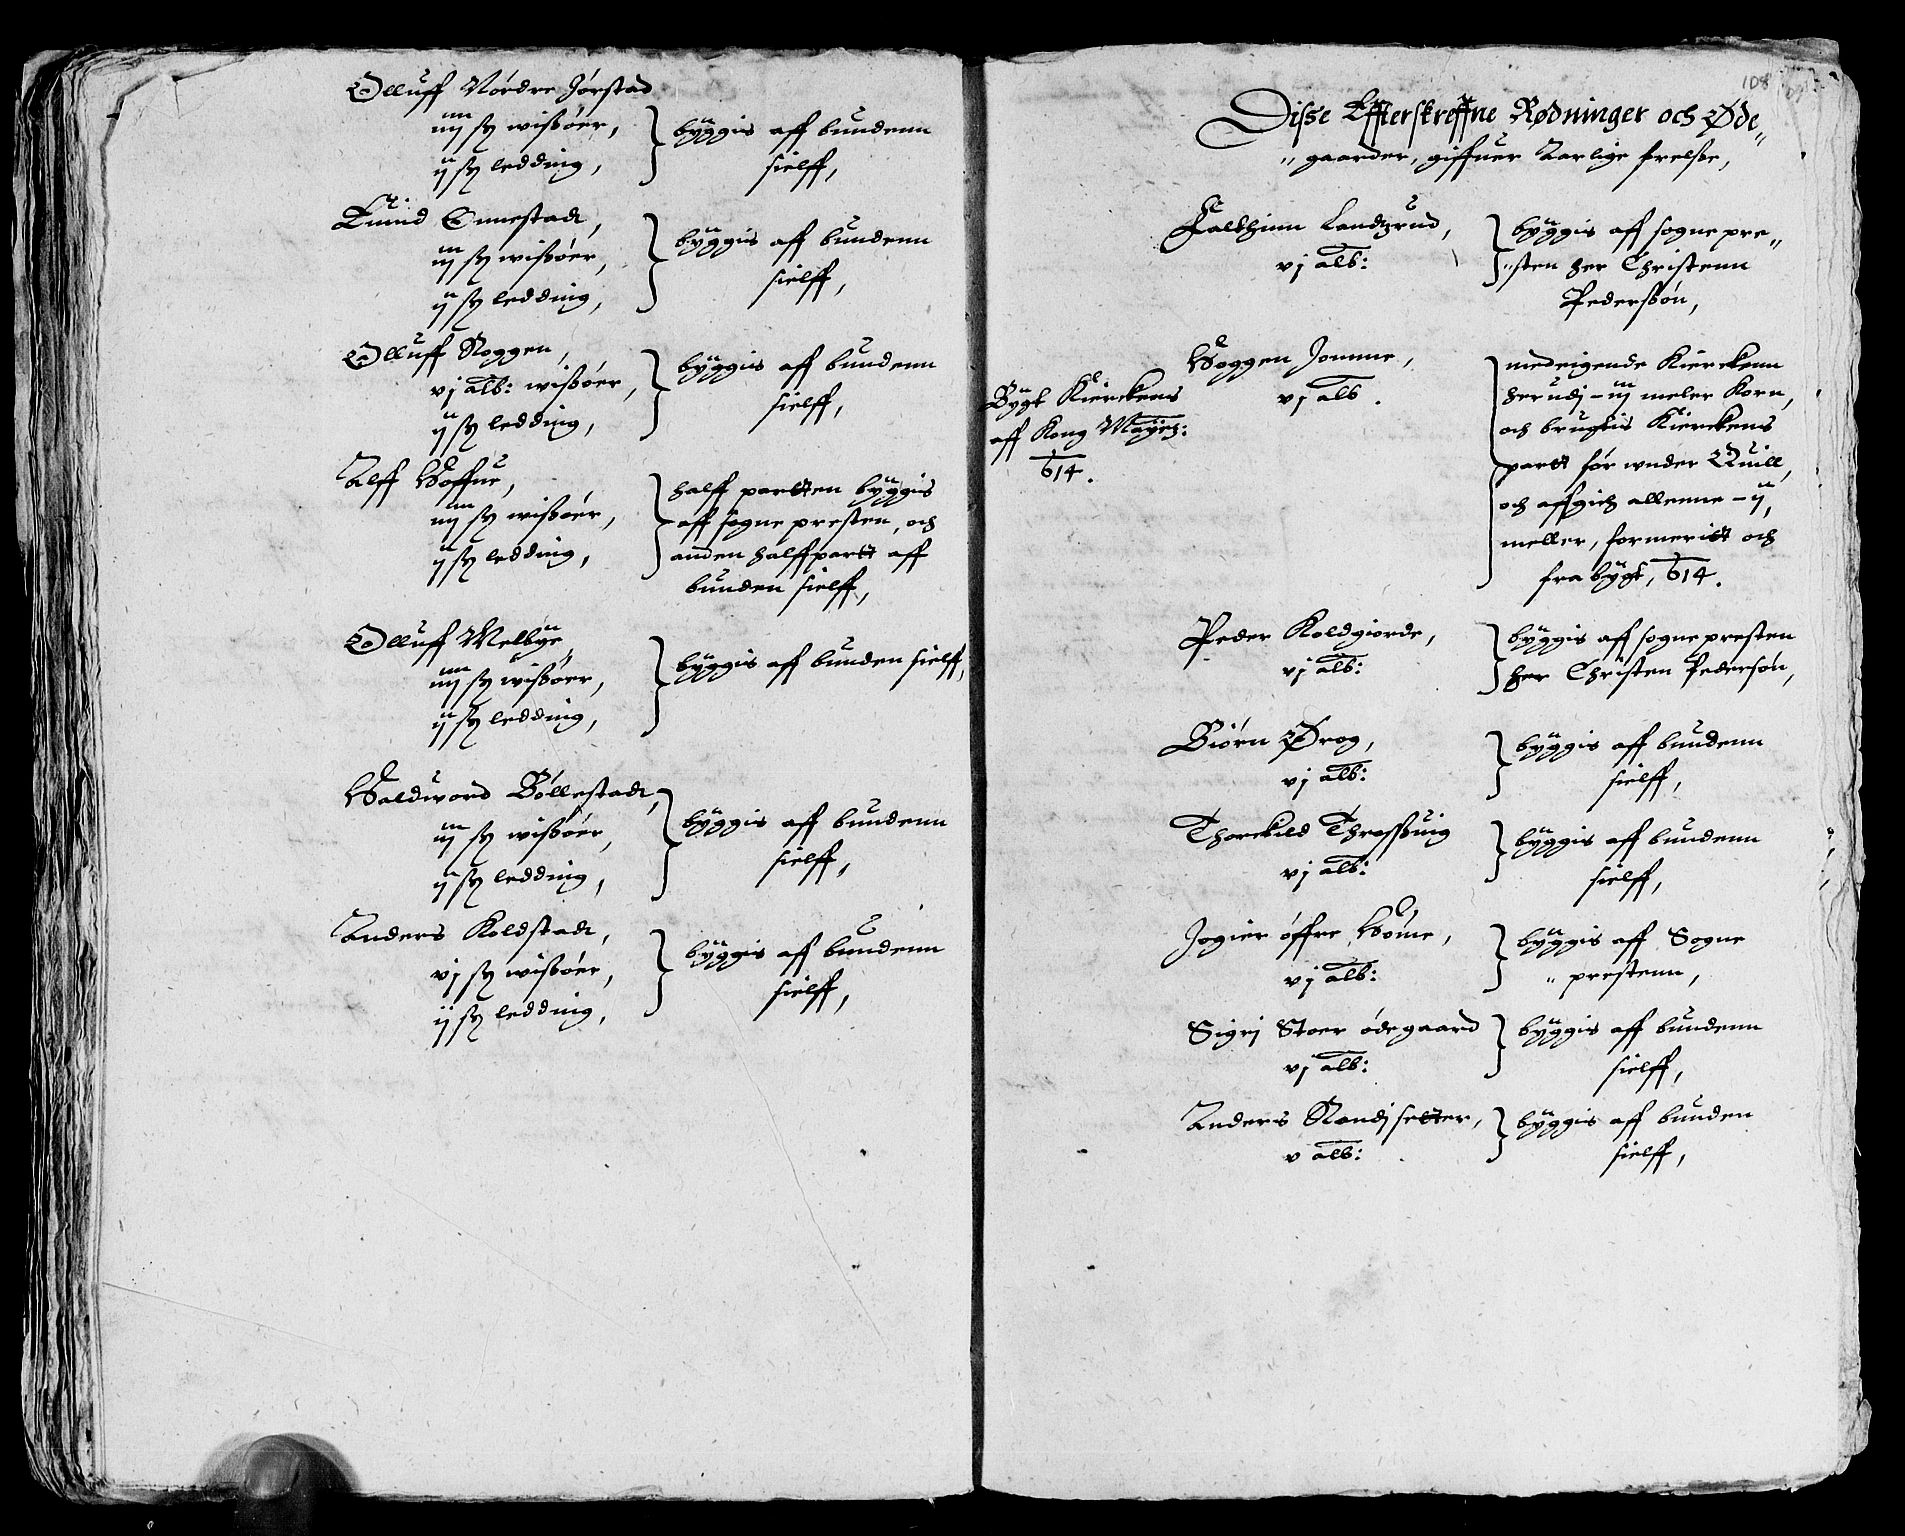 Olluff Nordre Jorstad
iiij sk wissøer,
ij sk ledding,
byggis aff bundenn
sielff,
Emind Ennestadt,
iij sk wissøer,
ij sk ledding,
byggis aff bundenn
sielff,
Olluff Roggen,
vj alb: wissøer,
ij sk ledding,
byggis aff bundenn
sielff,
Alff Hoffue,
iiij sk wissøer,
ij sk ledding,
halff partten byggis
aff sogne presten, och
anden halffpartt aff
bunden sielff,
Olluff Melbye
iiij sk wissøer,
ij sk ledding,
byggis aff bunden sielff,
Haldword Bøllestadt,
iij sk wissøer,
ij sk ledding,
byggis aff bundenn
sielff,
Anders Koldstadt,
vj sk wissøer,
ij sk ledding,
byggis aff bundenn
sielff,
108
Disse Effterskreffne Rødninger och Øde„
„gaarder, giffuer Aarlige frelsse,
Landzrud,
vj alb:
byggis aff sogne pre„
„sten her Christenn
Pederssøn,
Hoggen Jomme,
vj alb.
Bygt Kierckens
aff Kong Mayts:
614.
medeigende Kierckenn
herudj – iij meler Korn,
och brugtis Kierckens
partt før wnder Quill,
och affgich alleene – ij,
meller, formeritt och
fra bygt, 614.
Peder Koldgiorde,
vj alb:
byggis aff sogne presten
her Christen Pedersøn,
Biørn Ørog,
vj alb:
byggis aff bundenn
sielff,
Thorekild Throssuig
vj alb:
byggis aff bundenn
sielff,
Jogier øffre Home,
vj alb:
byggis aff Sogne
„prestenn,
Sigrj Stoer ødegaard
vj alb:
byggis aff bundenn
sielff,
Anders Randj setter,
v alb:
byggis aff bunden
sielff,